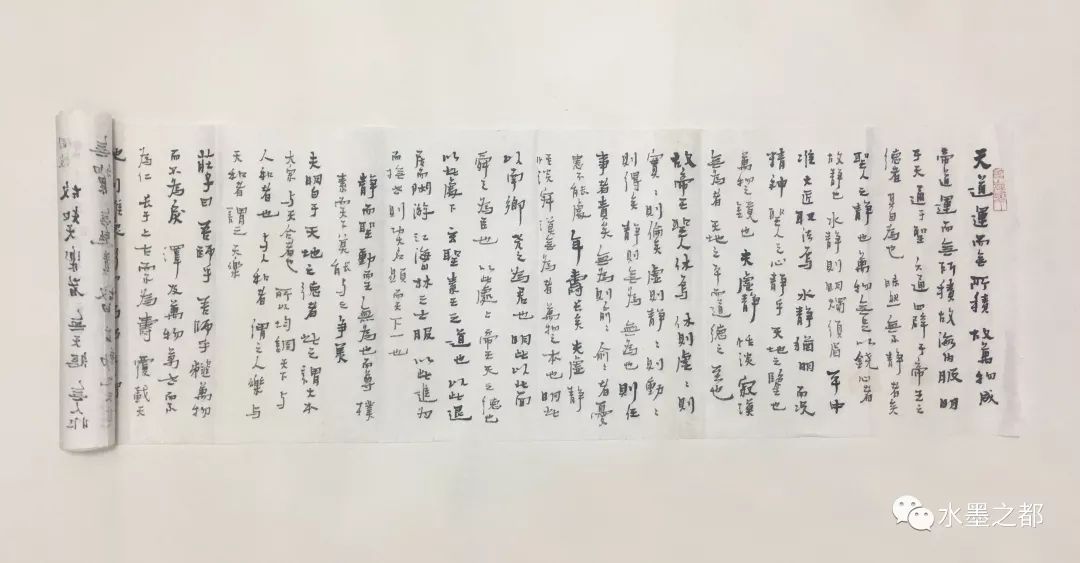 天道運而無所積 故萬物成
帝道運而無所積故海內服 明
于天通于聖 六通四辟于帝王之
德者 其自為也 昧然無不靜者矣
聖人之靜也 萬物無足以鐃心者
故靜也 水靜則明燭須眉 平中
准大匠取法焉 水靜猶明 而況
精神 聖人之心靜乎 天地之鑒也
萬物之鏡也 夫虛靜 恬淡 寂漠
無為者 天地之平而道德之至也
故帝王聖人休焉 休則虛〻則
實〻則倫矣虛則靜〻則動〻
則得矣 靜則無為 無為也 則任
事者責矣 無為則俞〻者憂
患不能處 年壽長矣 夫虛靜
恬淡寂漠無為者萬物之本也 明此
以南鄉 堯之為君也 明此以北面
舜之為臣也 以此處上帝王天子之德也
以此處下 玄聖素王之道也 以此退
居而閒游 江海山林之士服 以此進為
而撫世則功大名顯而天下一也
靜而聖動而王 無為也而尊 樸
素而天下莫能與之爭美
夫明白于天地之德者 此之謂大本
大宗 與天合者也 所以均調天下 與
人和者也 與人和者 謂之人樂 與
天和者 謂之天樂
莊子曰 吾師乎 吾師乎 䪠萬物
而不為戾 澤及萬物萬世而不
為仁 長于上古而不為壽 覆載天
故知天樂者 無天怨 無人非
水墨之都